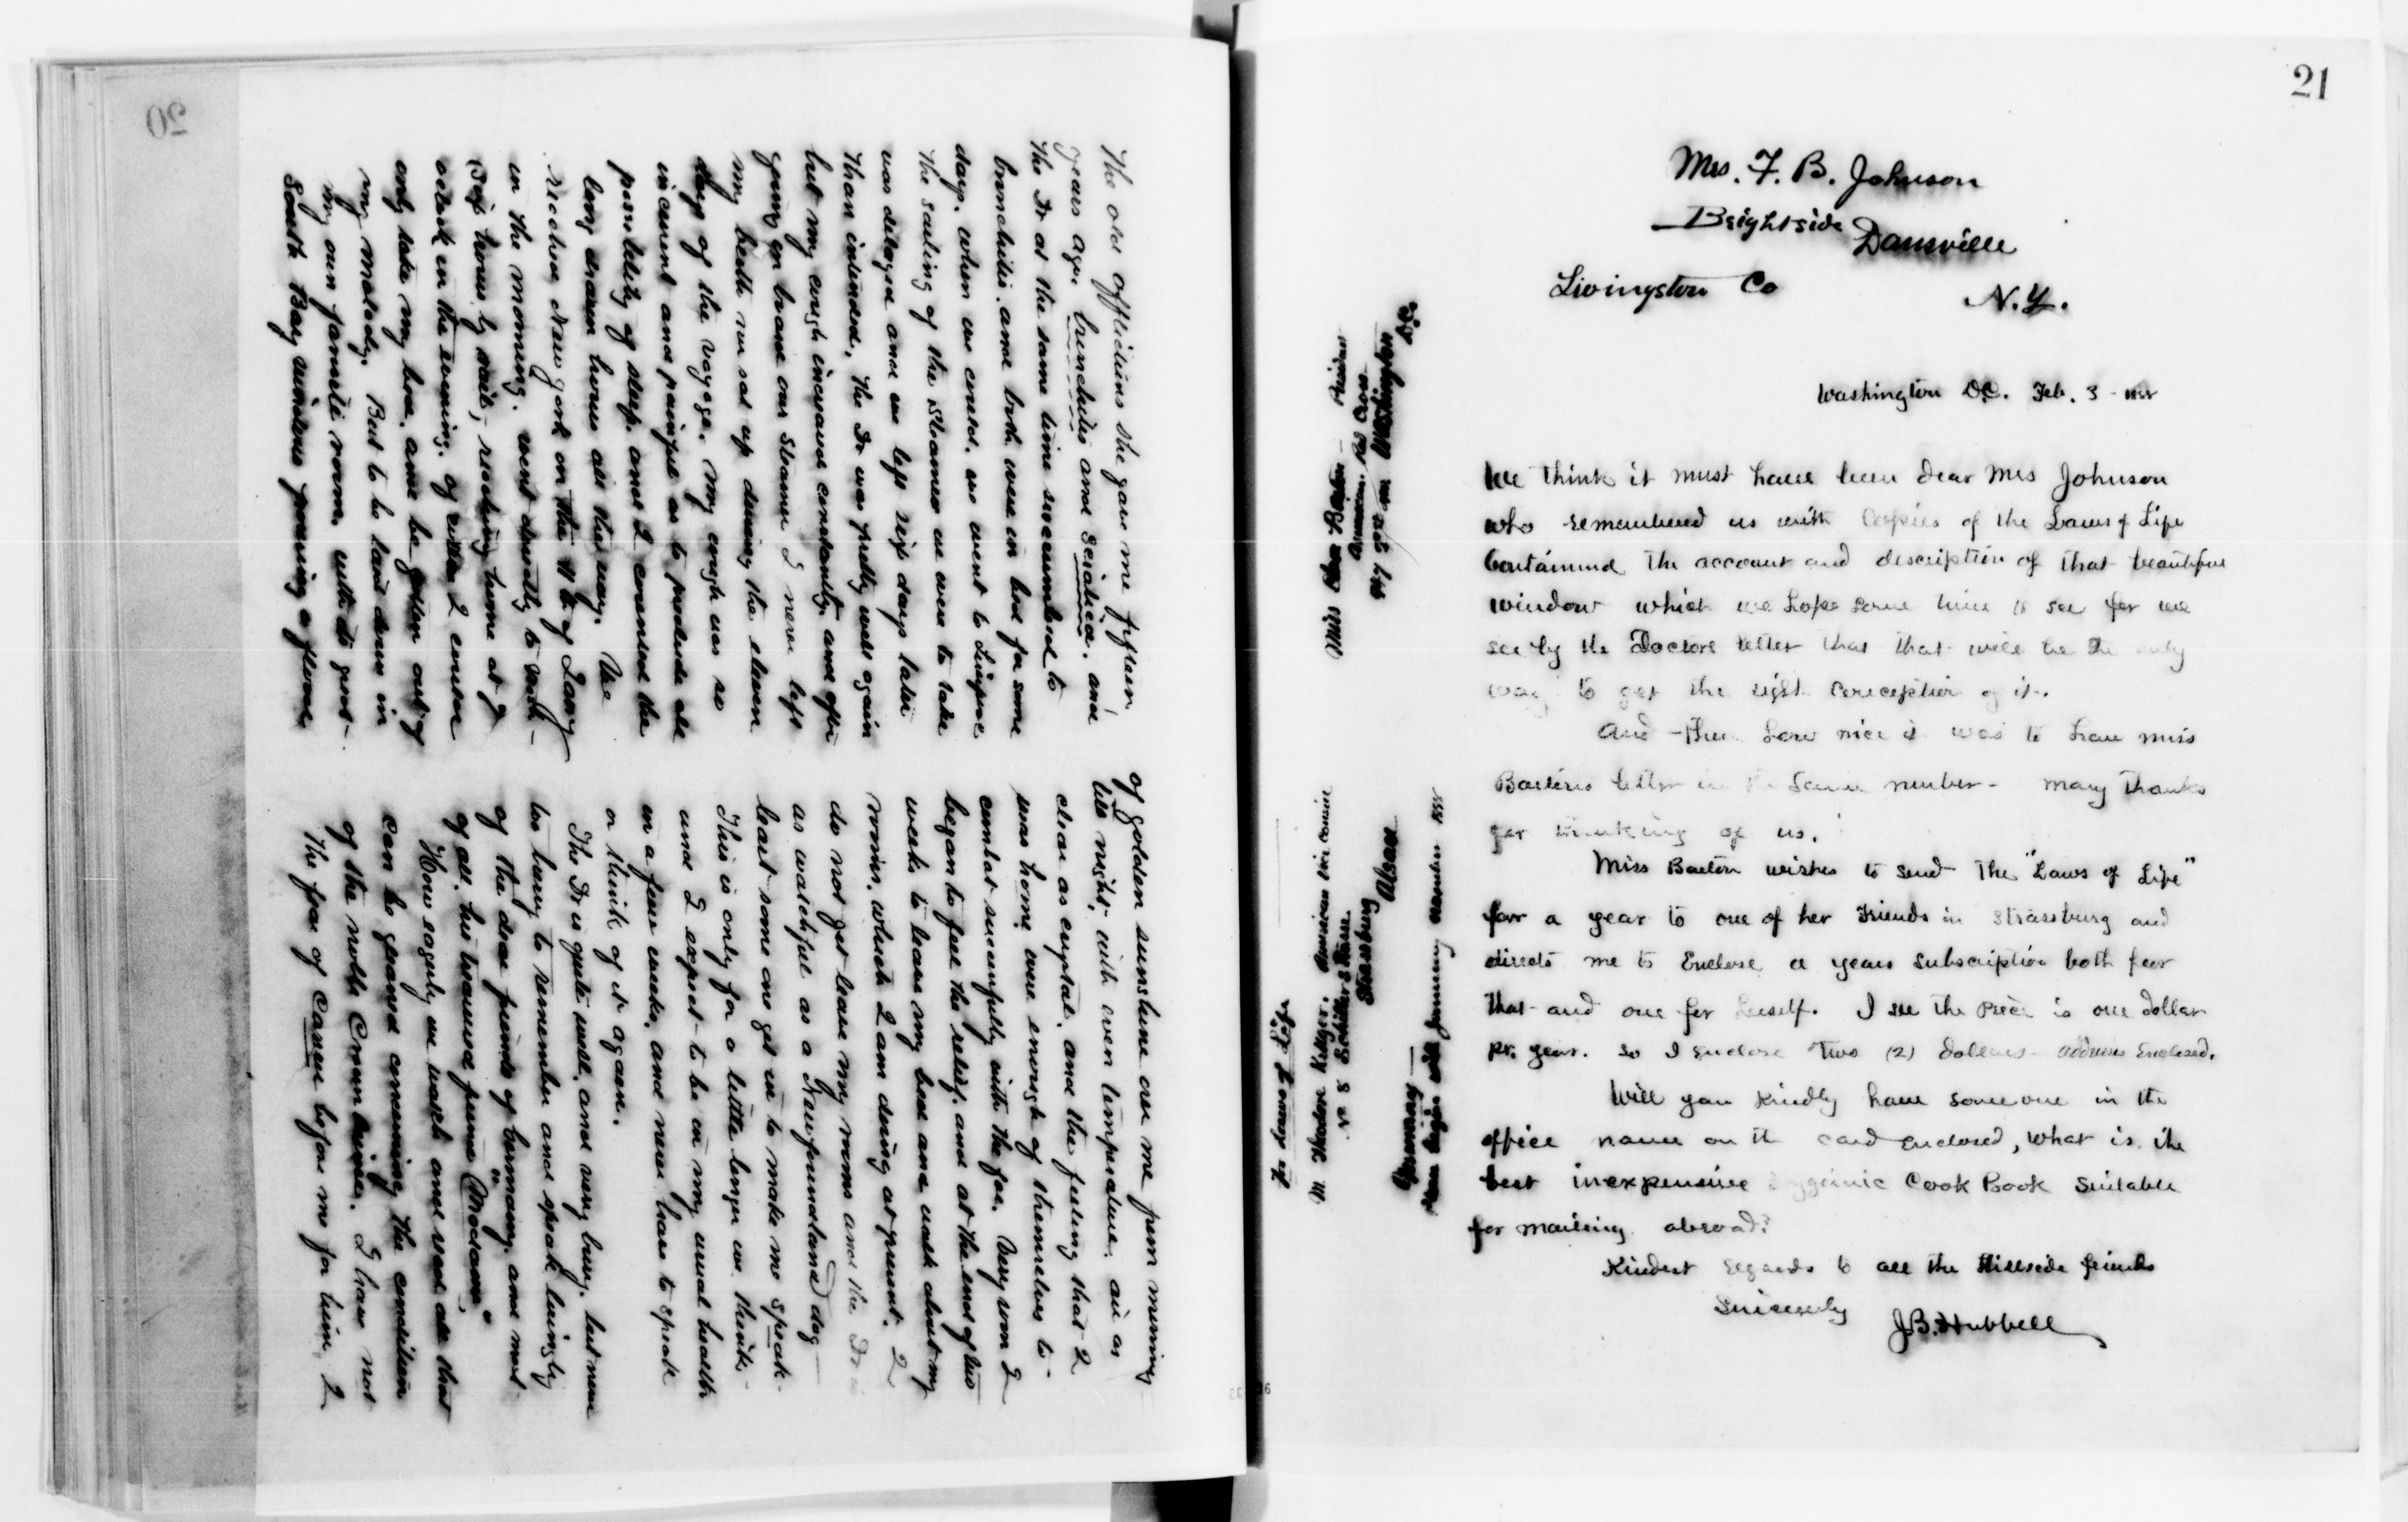 20
The old afflictions she gave me fifteen
years ago. bronchitis and sciatica, and
the Dr at the same time succumbed to
bronchitis and both were in bed for some
days. When we could, we went to Liverpool
the sailing of the steamer we were to take
was delayed and we left six days later
than intended, the Dr was pretty well again
but my cough increased constantly, and after
going on board our steamer I never left
my berth nor sat up during the eleven
days of the voyage. My cough was so
incessant and painful as to preclude all
possibility of sleep. and I counted the
long drawn hours all the way. We
reached New York on the 11th of Jany
in the morning. went directly to Wash-
six hours by rail, reaching home at 9
oclock in the evening. of course I could
only take my bed, and be gotten out of
my malady. But to be laid down in
my own favorite room, with its great
South Bay windows pouring a flood
of golden sunshine over me from morning
till night, with even temperature, air as
clear as crystal, and the feeling that I
was home were enough of themselves to
combat successfully with the foe. Very soon I
began to feel the relief, and at the end of two
weeks to leave my bed and walk about my
rooms, which I am doing at present. I
do not get leave my rooms and the Dr is
as watchful as a Newfoundland dog
least some one get in to make me speak.
This is only for a little longer we think,
and I expect to be in my usual health
in a few weeks, and never have to speak
or think of it again.
The Dr is quite well, and very busy, but never
too busy to remember and speak lovingly
of the dear friends of Germany, and most
of all, his honored friend "Madam"
How eagerly we watch and read all that
can be gleaned concerning the condition
of the noble Crown Prince. I have not
the fear of Cancer before me for him, I
21
Mrs. F. B. Johnson
Brightside Dansville
Livingston Co N.Y.
Washington D.C. Feb. 3 - 1888
We think it must have been dear Mrs Johnson
who remembered us with Copies of the Laws of Life
Containing the account and description of that beautiful
window which we hope some time to see for we
see by the Doctors letter that that will be the only
way to get the right conception of it.
And then how nice it was to have Miss
Bartons letter in the same number - many thanks
for thinking of us.
Miss Barton wishes to send The "Laws of Life"
for a year to one of her friends in Strassburg and
directs me to Enclose a years subscription both for
that and one for herself. I see the price is one dollar
pr. year. so I enclose Two (2) dollars. address Enclosed.
Will you kindly have some one in the
office name on the card enclosed, what is the
best inexpensive Hygienic Cook Book suitable
for mailing abroad?
Kindest regards to all the Hillside friends
Sincerely
J.B. Hubbell
Miss Clara Barton - President
American Red Cross
Washington
D.C.
For Laws of Life
M. Theodore Kittger. American Vice Consul
No 5 Schiller Strasse
Strassburg
Alsace
Germany -
Please begin with January number 1888